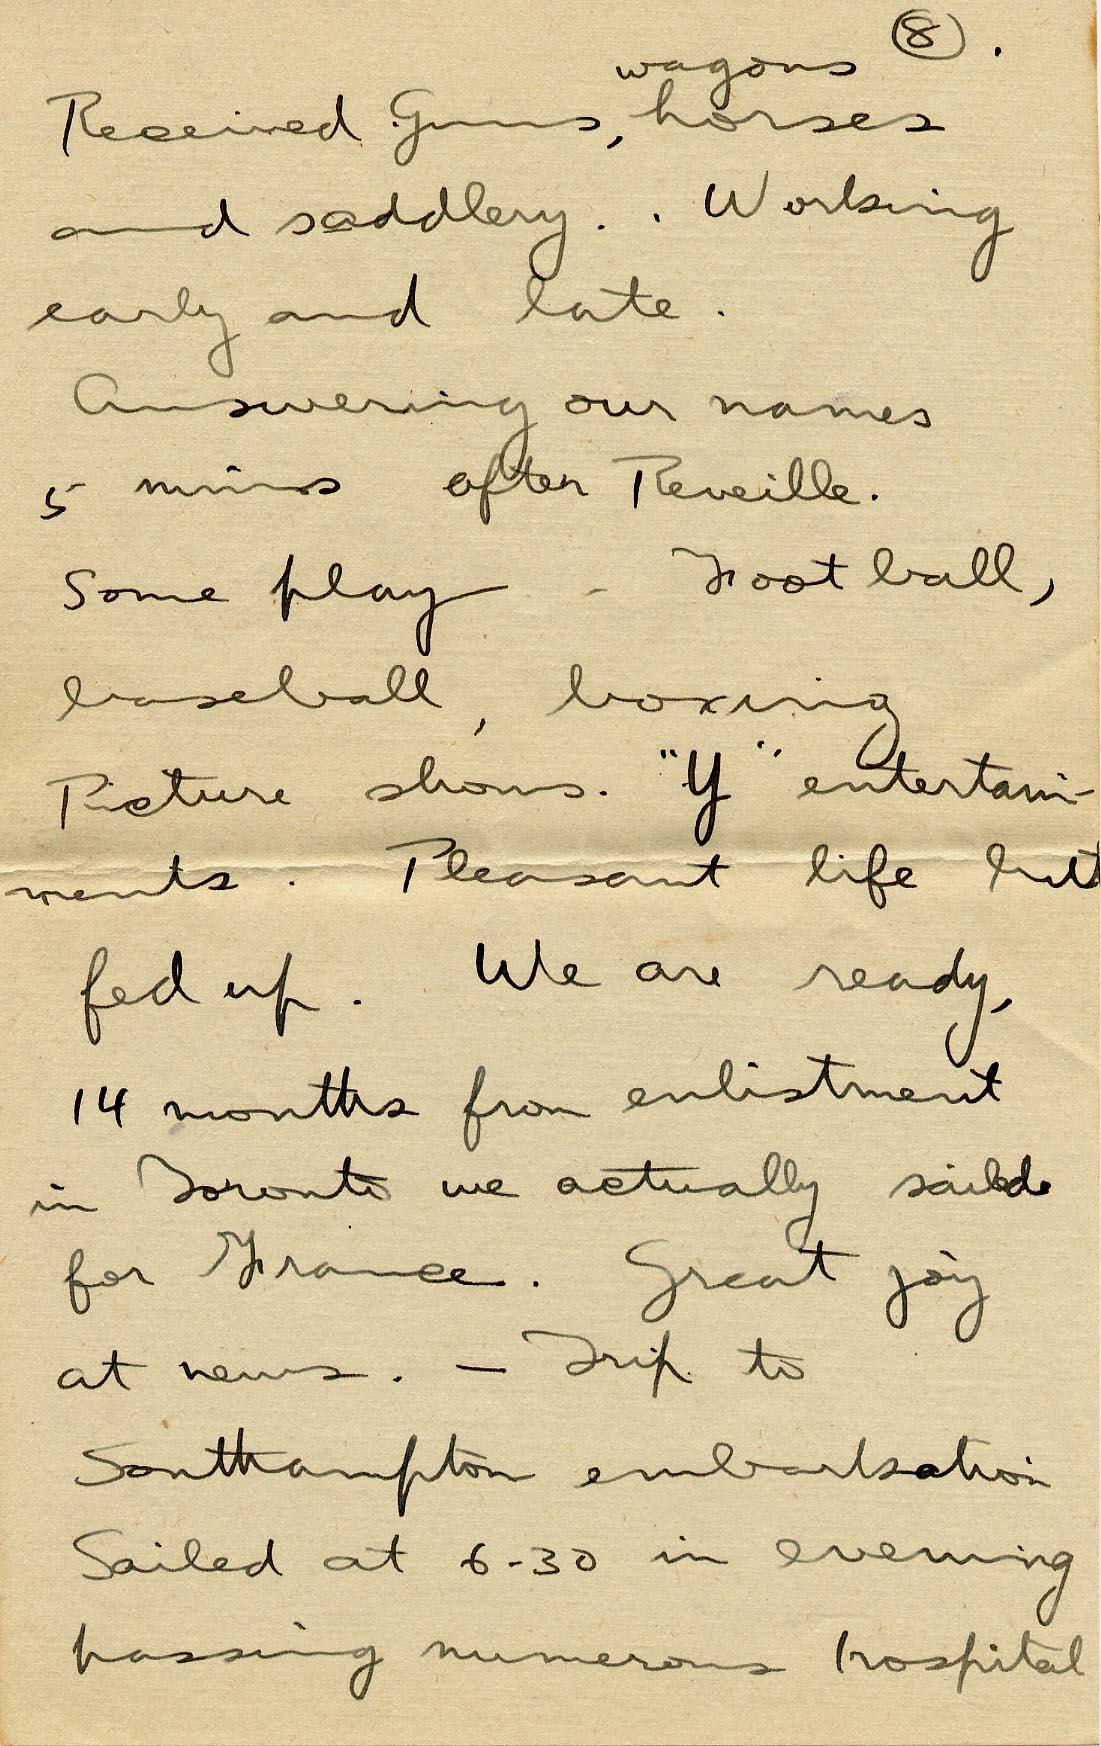 8.
wagons
Received Guns, horses
and saddlery. . Working
early and late.
Answering our names
5 mins after Reveille.
Some play - Football,
baseball, boxing
Picture shows. "Y" entertain-
ments. Pleasant life but
fed up. We are ready,
14 months from enlistment
in Toronto we actually sailed
for France. Great joy
at news. - Trip to
Southampton embarkation
Sailed at 6-30 in evening
passing numerous hospital